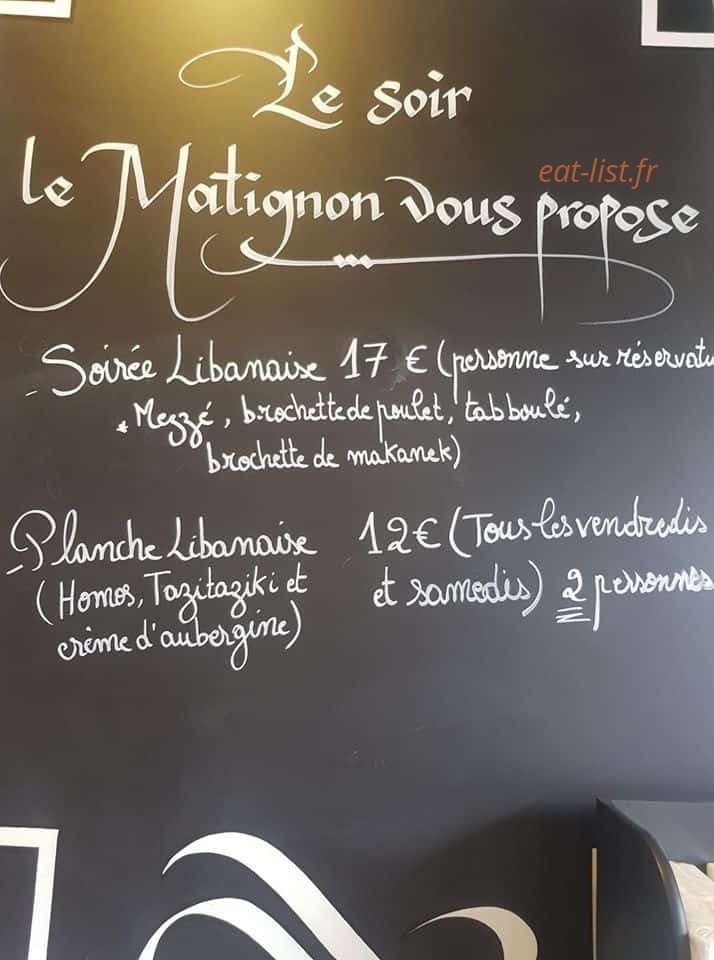 Le soir
eat-list.fr
le Matignon vous propose
- Soirée Libanaise 17 € (personne sur réservatu
* Mezzé, brochette de poulet, tabboulé,
brochette de makanek)
- Planche Libanaise 12€ (Tous les vendredis
(Homos, Tazitaziki et et samedis) 2 personnes
crème d'aubergine)